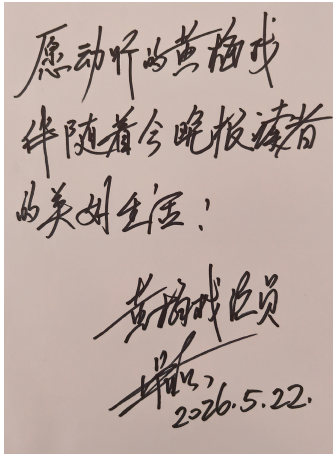 愿动听的黄梅戏
伴随着今晚报读者
的美好生活！
黄梅戏演员
2026.5.22.